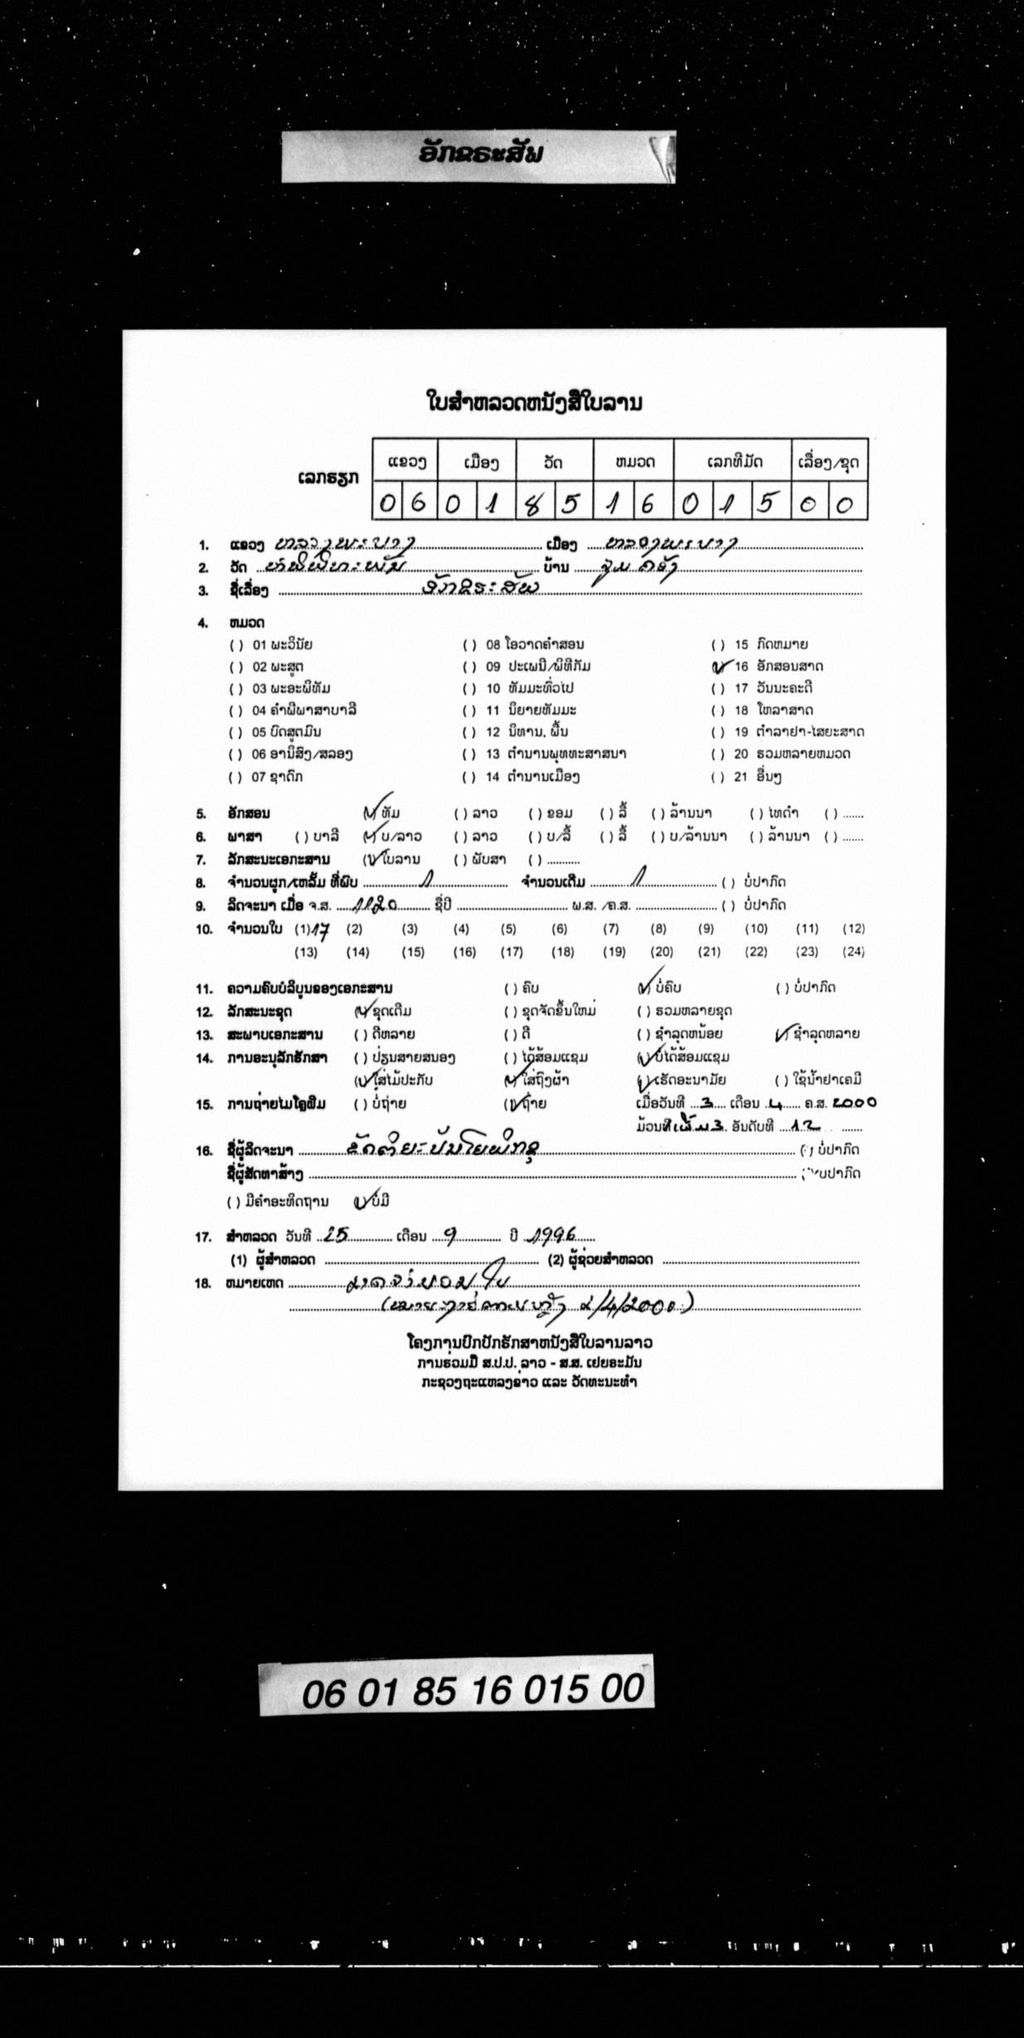 ອັກຂຣະສັພ
ໃບສຳຫລວດຫນັງສືໃບລານ
ເລກຣຽກ
ແຂວງ ເມືອງ ວັດ ຫມວດ ເລກທີມັດ ເລື່ອງ/ຊຸດ
0 6 0 1 8 5 1 6 0 1 5 0 0
1. ແຂວງ ຫລວງພຣະບາງ ເມືອງ ຫລວງພຣະບາງ
2. ວັດ ຫໍພິພິທະພັນ ບ້ານ ຈູມຄ້ອງ
3. ຊື່ເລື່ອງ ອັກຂຣະສັພ
4. ຫມວດ
( ) 01 ພະວິນັຍ ( ) 08 ໂອວາດຄຳສອນ ( ) 15 ກົດຫມາຍ
( ) 02 ພະສູດ ( ) 09 ປະເພນີ/ພິທີກັມ (✓) 16 ອັກສອນສາດ
( ) 03 ພະອະພິທັມ ( ) 10 ທັມມະທົ່ວໄປ ( ) 17 ວັນນະຄະດີ
( ) 04 ຄຳພີພາສາບາລີ ( ) 11 ນິຍາຍທັມມະ ( ) 18 ໂຫລາສາດ
( ) 05 ບົດສູດມົນ ( ) 12 ນິທານ, ພື້ນ ( ) 19 ຕຳລາຢາ-ໄສຍະສາດ
( ) 06 ອານິສົງ/ສລອງ ( ) 13 ຕຳນານພຸທທະສາສນາ ( ) 20 ຮວມຫລາຍຫມວດ
( ) 07 ຊາດົກ ( ) 14 ຕຳນານເມືອງ ( ) 21 ອື່ນໆ
5. ອັກສອນ (✓) ທັມ ( ) ລາວ ( ) ຂອມ ( ) ລື້ ( ) ລ້ານນາ ( ) ໄທດຳ ( ) ......
6. ພາສາ ( ) ບາລີ (✓) ບ/ລາວ ( ) ລາວ ( ) ບ/ລື້ ( ) ລື້ ( ) ບ/ລ້ານນາ ( ) ລ້ານນາ ( ) ......
7. ລັກສະນະເອກະສານ (✓) ໃບລານ ( ) ພັບສາ ( ) ..........
8. ຈຳນວນຜູກ/ເຫລັ້ມ ທີ່ພົບ 1 ຈຳນວນເດີມ 1 ( ) ບໍ່ປາກົດ
9. ລິດຈະນາ ເມື່ອ ຈ.ສ. 1120 ຊື່ປີ ພ.ສ. /ຄ.ສ. ( ) ບໍ່ປາກົດ
10. ຈຳນວນໃບ (1) 17 (2) (3) (4) (5) (6) (7) (8) (9) (10) (11) (12)
(13) (14) (15) (16) (17) (18) (19) (20) (21) (22) (23) (24)
11. ຄວາມຄົບບໍລິບູນຂອງເອກະສານ ( ) ຄົບ (✓) ບໍ່ຄົບ ( ) ບໍ່ປາກົດ
12. ລັກສະນະຊຸດ (✓) ຊຸດເດີມ ( ) ຊຸດຈັດຂຶ້ນໃຫມ່ ( ) ຮວມຫລາຍຊຸດ
13. ສະພາບເອກະສານ ( ) ດີຫລາຍ ( ) ດີ ( ) ຊຳລຸດຫນ້ອຍ (✓) ຊຳລຸດຫລາຍ
14. ການອະນຸລັກຮັກສາ ( ) ປ່ຽນສາຍສນອງ ( ) ໄດ້ສ້ອມແຊມ (✓) ບໍ່ໄດ້ສ້ອມແຊມ
(✓) ໃສ່ໄມ້ປະກັບ (✓) ໃສ່ຖົງຜ້າ (✓) ເຮັດອະນາມັຍ ( ) ໃຊ້ນ້ຳຢາເຄມີ
15. ການຖ່າຍໄມໂຄຼຟິມ ( ) ບໍ່ຖ່າຍ (✓) ຖ່າຍ ເມື່ອວັນທີ 3 ເດືອນ 4 ຄ.ສ. 2000
ມ້ວນທີ 3 ອັນດັບທີ 12
16. ຊື່ຜູ້ລິດຈະນາ ( ) ບໍ່ປາກົດ
ຊື່ຜູ້ສັດທາສ້າງ (✓) ບໍ່ປາກົດ
( ) ມີຄຳອະທິດຖານ (✓) ບໍ່ມີ
17. ສຳຫລວດ ວັນທີ 25 ເດືອນ 9 ປີ 1996
(1) ຜູ້ສຳຫລວດ (2) ຜູ້ຊ່ວຍສຳຫລວດ
18. ຫມາຍເຫດ
2/4/2000)
ໂຄງການປົກປັກຮັກສາຫນັງສືໃບລານລາວ
ການຮ່ວມມື ສ.ປ.ປ. ລາວ - ສ.ສ. ເຢຍຣະມັນ
ກະຊວງຖະແຫລງຂ່າວ ແລະ ວັດທະນະທຳ
06 01 85 16 015 00